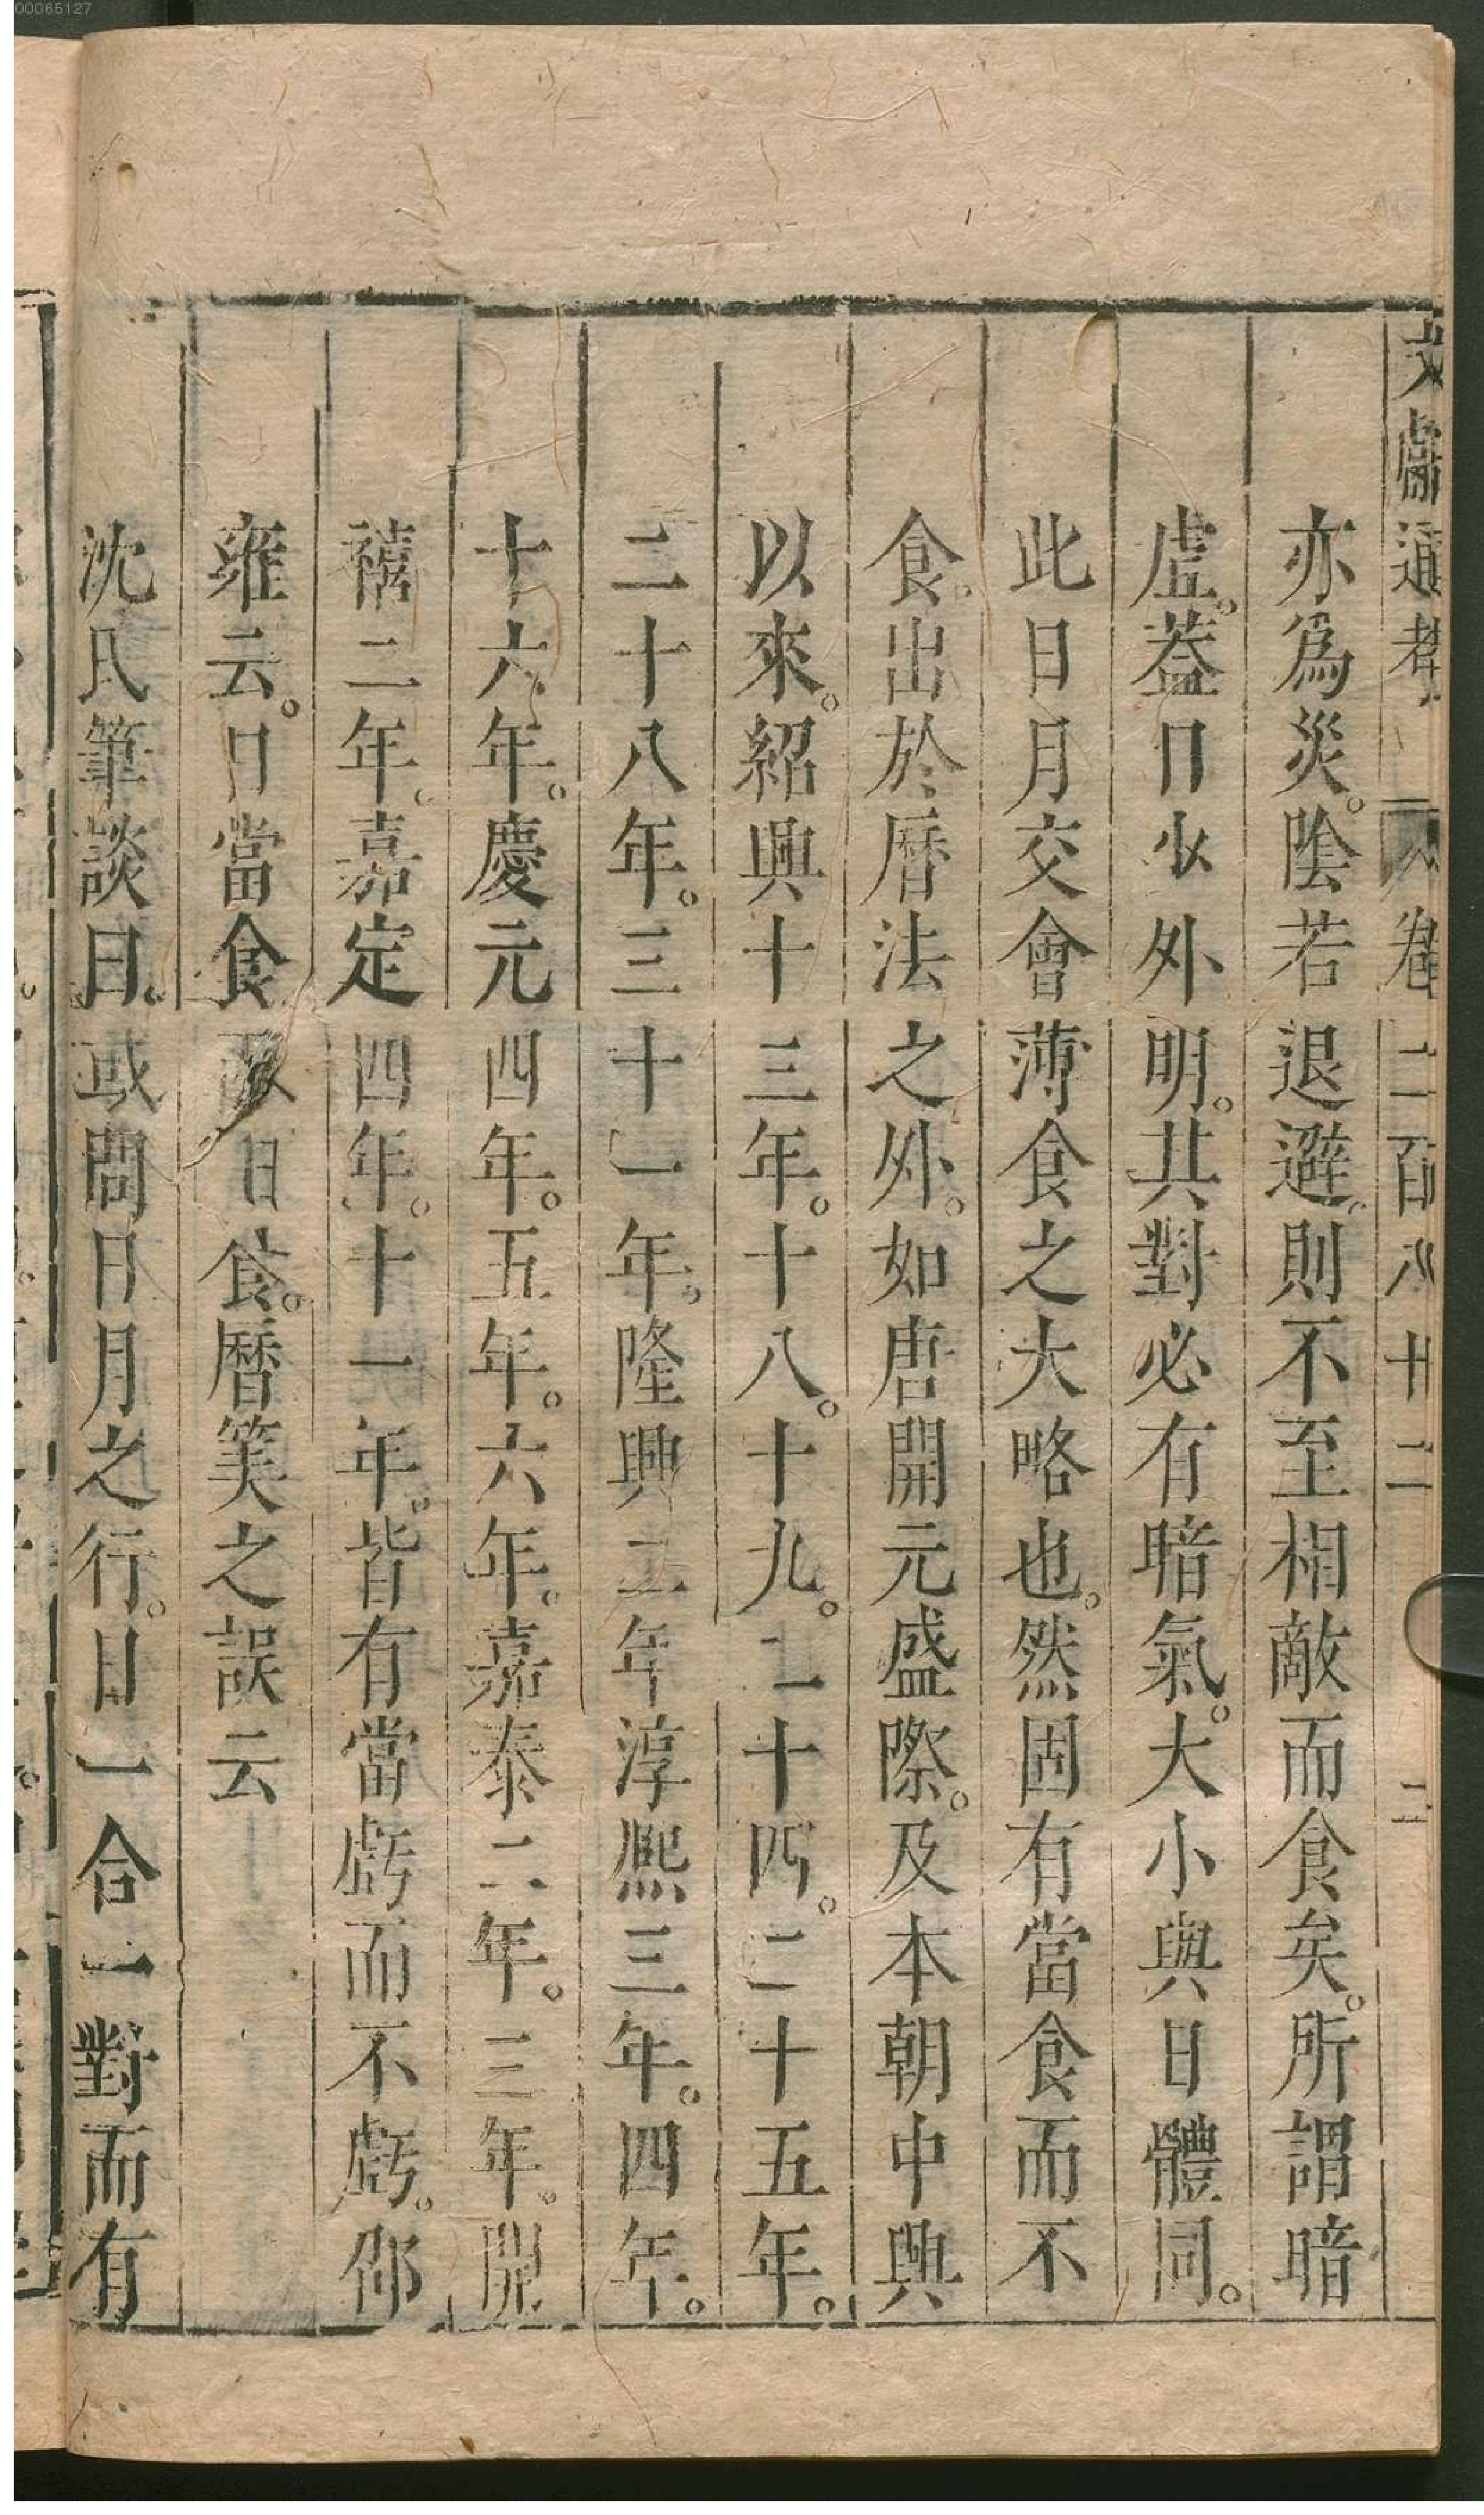 00065127
文獻通考 卷二百八十二 二
亦爲災。陰若退避。則不至相敵而食矣。所謂暗
虛。葢日火外明。其對必有暗氣。大小與日體同。
此日月交會薄食之大略也。然固有當食而不
食。出於曆法之外。如唐開元盛際。及本朝中興
以來。紹興十三年。十八。十九。二十四。二十五年。
二十八年。三十一年。隆興二年淳熙三年。四年。
十六年。慶元四年。五年。六年。嘉泰二年。三年。開
禧二年。嘉定四年。十一年。皆有當虧而不虧。邵
雍云。日當食 日食。曆筭之誤云
沈氏筆談曰。或問日月之行。日一合一對而有